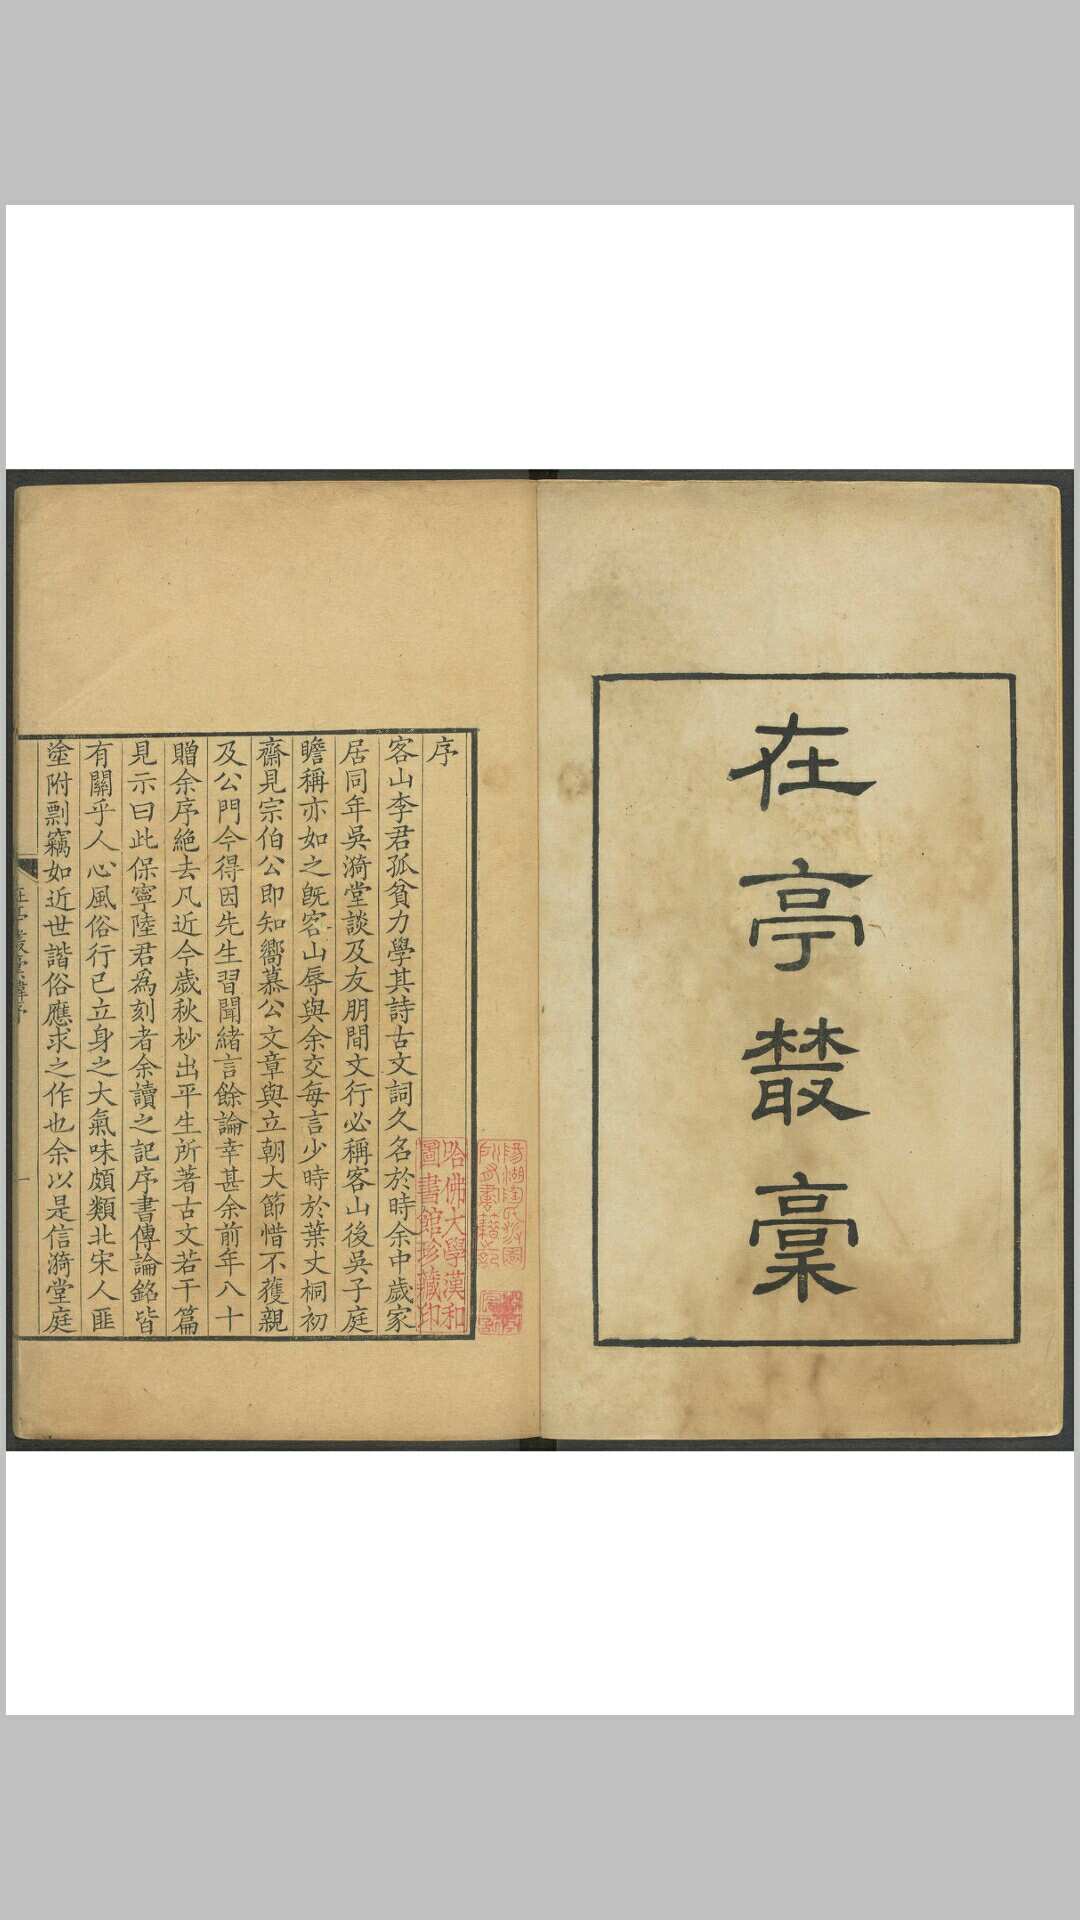 在亭叢稾
序
客山李君孤貧力學其詩古文詞久名於時余中歲家
居同年吳漪堂談及友朋間文行必稱客山後吳子庭
瞻稱亦如之旣客山辱與余交每言少時於葉丈桐初
齋見宗伯公即知嚮慕公文章與立朝大節惜不獲親
及公門今得因先生習聞緒言餘論幸甚余前年八十
贈余序絶去凡近今歲秋杪出平生所著古文若干篇
見示曰此保寧陸君爲刻者余讀之記序書傳論銘皆
有關乎人心風俗行已立身之大氣味頗類北宋人匪
塗附剽竊如近世諧俗應求之作也余以是信漪堂庭
哈佛大學漢和
圖書館珍藏印